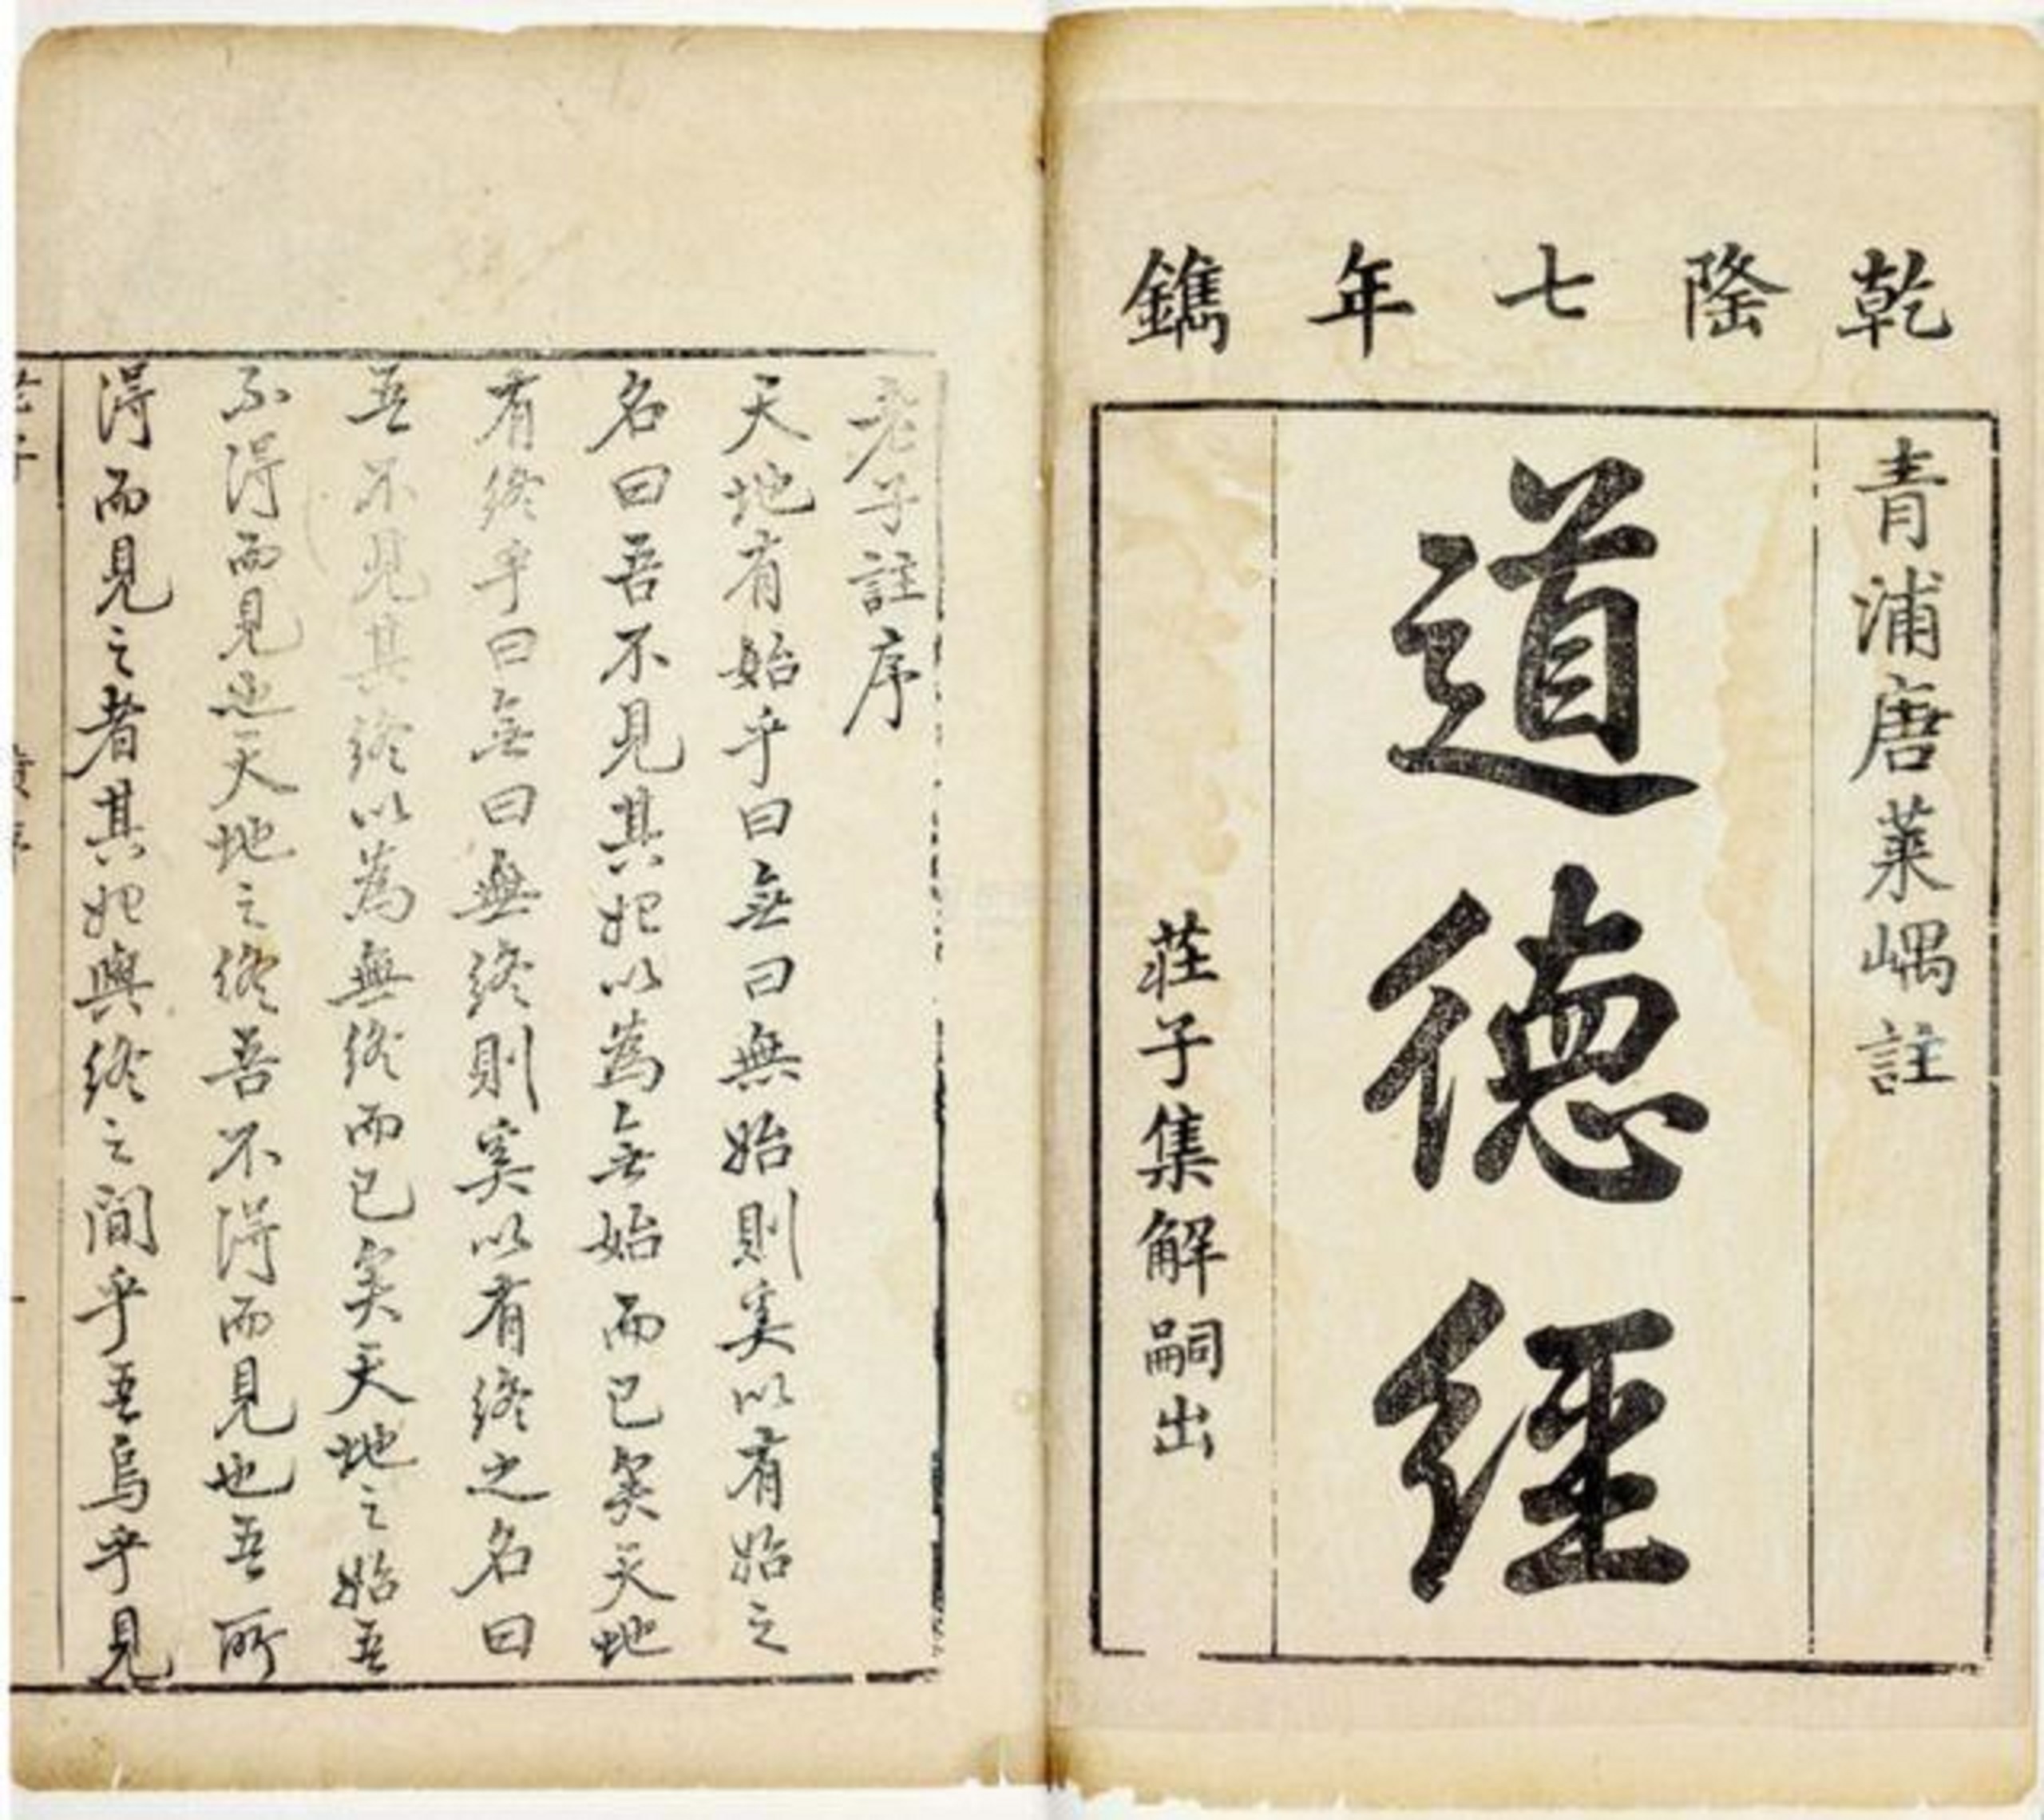 乾隆七年鐫
青浦唐萊嵎註
道德經
荘子集解嗣出
老子註序
天地有始乎曰無曰無始則奚以有始之
名曰吾不見其始以為無始而已矣天地
有終乎曰無曰無終則奚以有終之名曰
吾不見其終以為無終而已矣天地之始吾
不得而見也天地之終吾不得而見也吾所
得而見之者其始與終之間乎吾烏乎見